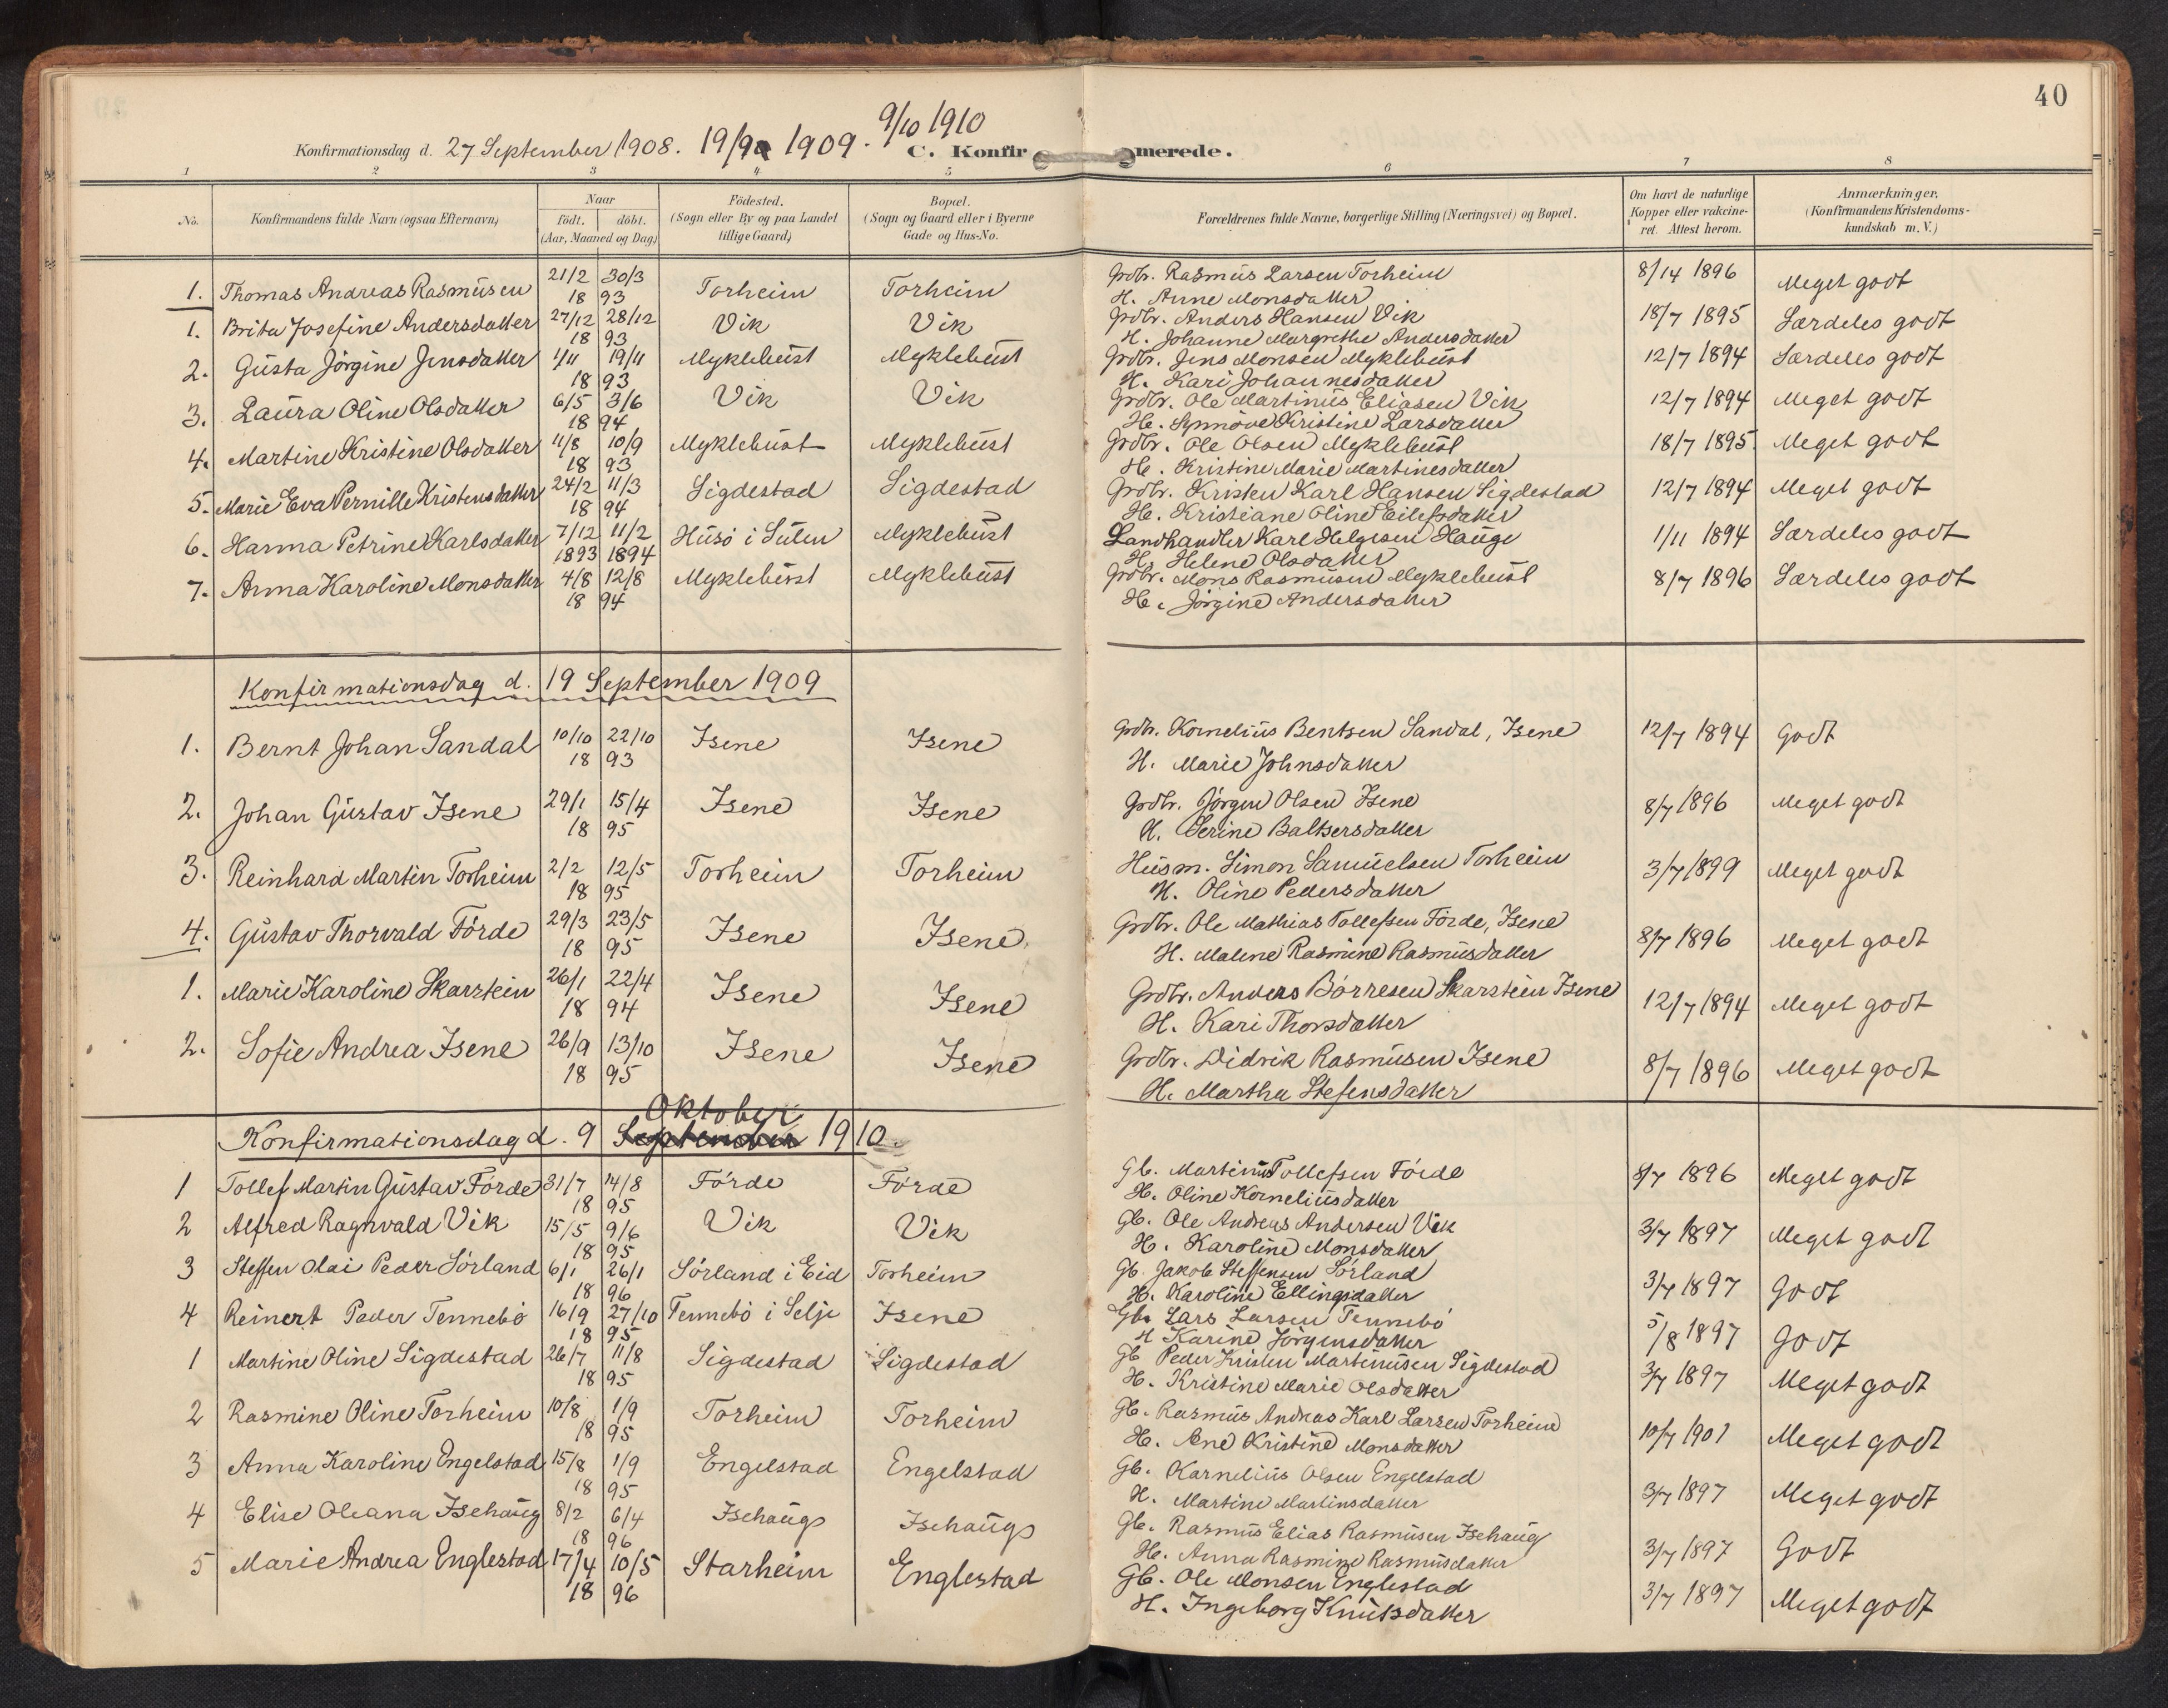 40
Konfirmationsdag d. 27 September 1908. 19/9 1909. 9/10 1910 C. Konfirmerede.
1 2 3 4 5 6 7 8
No. Konfirmandens fulde Navn (ogsaa Efternavn) Naar født. døbt. (Aar, Maaned og Dag) Födested. (Sogn eller By og paa Landet tillige Gaard) Bopæl. (Sogn og Gaard eller i Byerne Gade og Hus-No. Forældrenes fulde Navne, borgerlige Stilling (Næringsvei) og Bopæl. Om havt de naturlige Kopper eller vakcineret. Attest herom. Anmærkninger, (Konfirmandens Kristendomskundskab m. V.)
1. Thomas Andreas Rasmusen 21/2 30/3 Torheim Torheim Grdbr. Rasmus Larsen Torheim 8/14 1896 Meget godt
18 93 H. Anne Monsdatter
1. Brita Josefine Andersdatter 27/12 28/12 Vik Vik Grdbr. Anders Hansen Vik 18/7 1895 Særdeles godt
18 93 H. Johanne Margrethe Andersdatter
2. Gusta Jørgine Jensdatter 1/11 19/11 Myklebust Myklebust Grdbr. Jens Monsen Myklebust 12/7 1894 Særdeles godt
18 93 H. Kari Johannesdatter
3. Laura Oline Olsdatter 6/5 3/6 Vik Vik Grdbr. Ole Martinus Eliasen Vik 12/7 1894 Meget godt
18 94 H. Synnøve Kristine Larsdatter
4. Martine Kristine Olsdatter 11/8 10/9 Myklebust Myklebust Grdbr. Ole Olsen Myklebust 18/7 1895. Meget godt
18 93 H. Kristine Marie Martinesdatter
5. Marie Eva Pernille Kristensdatter 24/2 11/3 Sigdestad Sigdestad Grdbr. Kristen Karl Hansen Sigdestad 12/7 1894 Meget godt
18 94 H. Kristiane Oline Eilefsdatter
6. Hanna Petrine Karlsdatter 7/12 11/2 Husø i Sulen Myklebust Landhandler Karl Helgesen Hauge 1/11 1894 Særdeles godt
1893 1894 H. Helene Olsdatter
7. Anna Karoline Monsdatter 4/8 12/8 Myklebust Myklebust Grdbr. Mons Rasmusen Myklebust 8/7 1896 Særdeles godt
18 94 H. Jørgine Andersdatter
Konfirmationsdag d. 19 September 1909
1. Bernt Johan Sandal 10/10 22/10 Isene Isene Grdbr. Kornelius Bentsen Sandal, Isene 12/7 1894 Godt
18 93 H. Marie Johnsdatter
2. Johan Gustav Isene 29/1 15/4 Isene Isene Grdbr. Jørgen Olsen Isene 8/7 1896 Meget godt
18 95 H. Serine Baltsersdatter
3. Reinhard Martin Torheim 2/2 12/5 Torheim Torheim Husm. Simon Samuelsen Torheim 3/7 1899 Meget godt
18 95 H. Oline Pedersdatter
4. Gustav Thorvald Förde 29/3 23/5 Isene Isene Grdbr. Ole Mathias Tollefsen Förde, Isene 8/7 1896 Meget godt
18 95 H. Malene Rasmine Rasmusdatter
1. Marie Karoline Skarstein 26/1 22/4 Isene Isene Grdbr. Anders Börresen Skarstein Isene 12/7 1894 Meget godt
18 94 H. Kari Thorsdatter
2. Sofie Andrea Isene 26/9 13/10 Isene Isene Grdbr. Didrik Rasmusen Isene 8/7 1896 Meget godt
18 95 H. Martha Stefensdatter
Oktober
Konfirmationsdag d. 9 September 1910.
1 Tollef Martin Gustav Förde 31/7 14/8 Förde Förde Gb. Martinus Tollefsen Förde 8/7 1896 Meget godt
18 95 H. Oline Korneliusdatter
2 Alfred Ragnvald Vik 15/5 9/6 Vik Vik Gb. Ole Andreas Andersen Vik 3/7 1897 Meget godt
18 95 H. Karoline Monsdatter
3 Steffen Olai Peder Sörland 6/1 26/1 Sörland i Eid Torheim Gb. Jakob Steffensen Sörland 3/7 1897 Godt
18 96 H. Karoline Ellingsdatter
4 Reinert Peder Tennebö 16/9 27/10 Tennebö i Selje Isene Gb. Lars Larsen Tennebö 5/8 1897 Godt
18 95 H Karine Jörgensdatter
1 Martine Oline Sigdestad 26/7 11/8 Sigdestad Sigdestad Gb Peder Kristen Martinusen Sigdestad 3/7 1897 Meget godt
18 95 H. Kristine Marie Olsdatter
2 Rasmine Oline Torheim 10/8 1/9 Torheim Torheim Gb. Rasmus Andreas Karl Larsen Torheim 10/7 1901 Meget godt
18 95 H. Ane Kristine Monsdatter
3 Anna Karoline Engelstad 15/8 1/9 Engelstad Engelstad Gb. Karnelius Olsen Engelstad 3/7 1897 Meget godt
18 95 H. Martine Martinsdatter
4 Elise Oleana Isehaug 8/2 6/4 Isehaug Isehaug Gb. Rasmus Elias Rasmusen Isehaug 3/7 1897 Godt
18 96 H. Anna Rasmine Rasmusdatter
5 Marie Andrea Englestad 17/4 10/5 Starheim Englestad Gb. Ole Monsen Englestad 3/7 1897 Meget godt
18 96 H. Ingeborg Knutsdatter